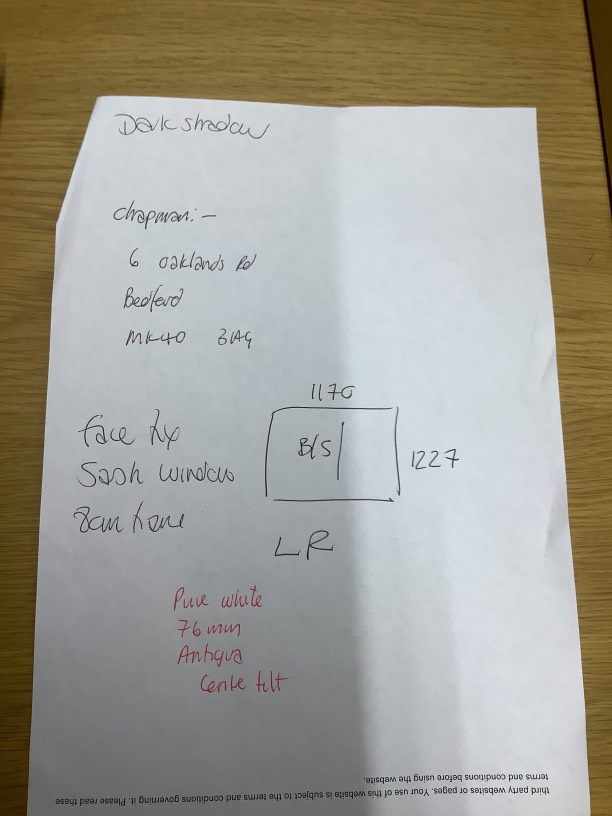 Dark shadow
Chapman:-
6 Oaklands Rd
Bedford
MK40
1170
Face fix
B/S
1227
Sash window
LR
Pure white
76mm
Antigua
Centre tilt
third party websites or pages. Your use of this website is subject to the terms and conditions governing it. Please read these
terms and conditions before using the website.